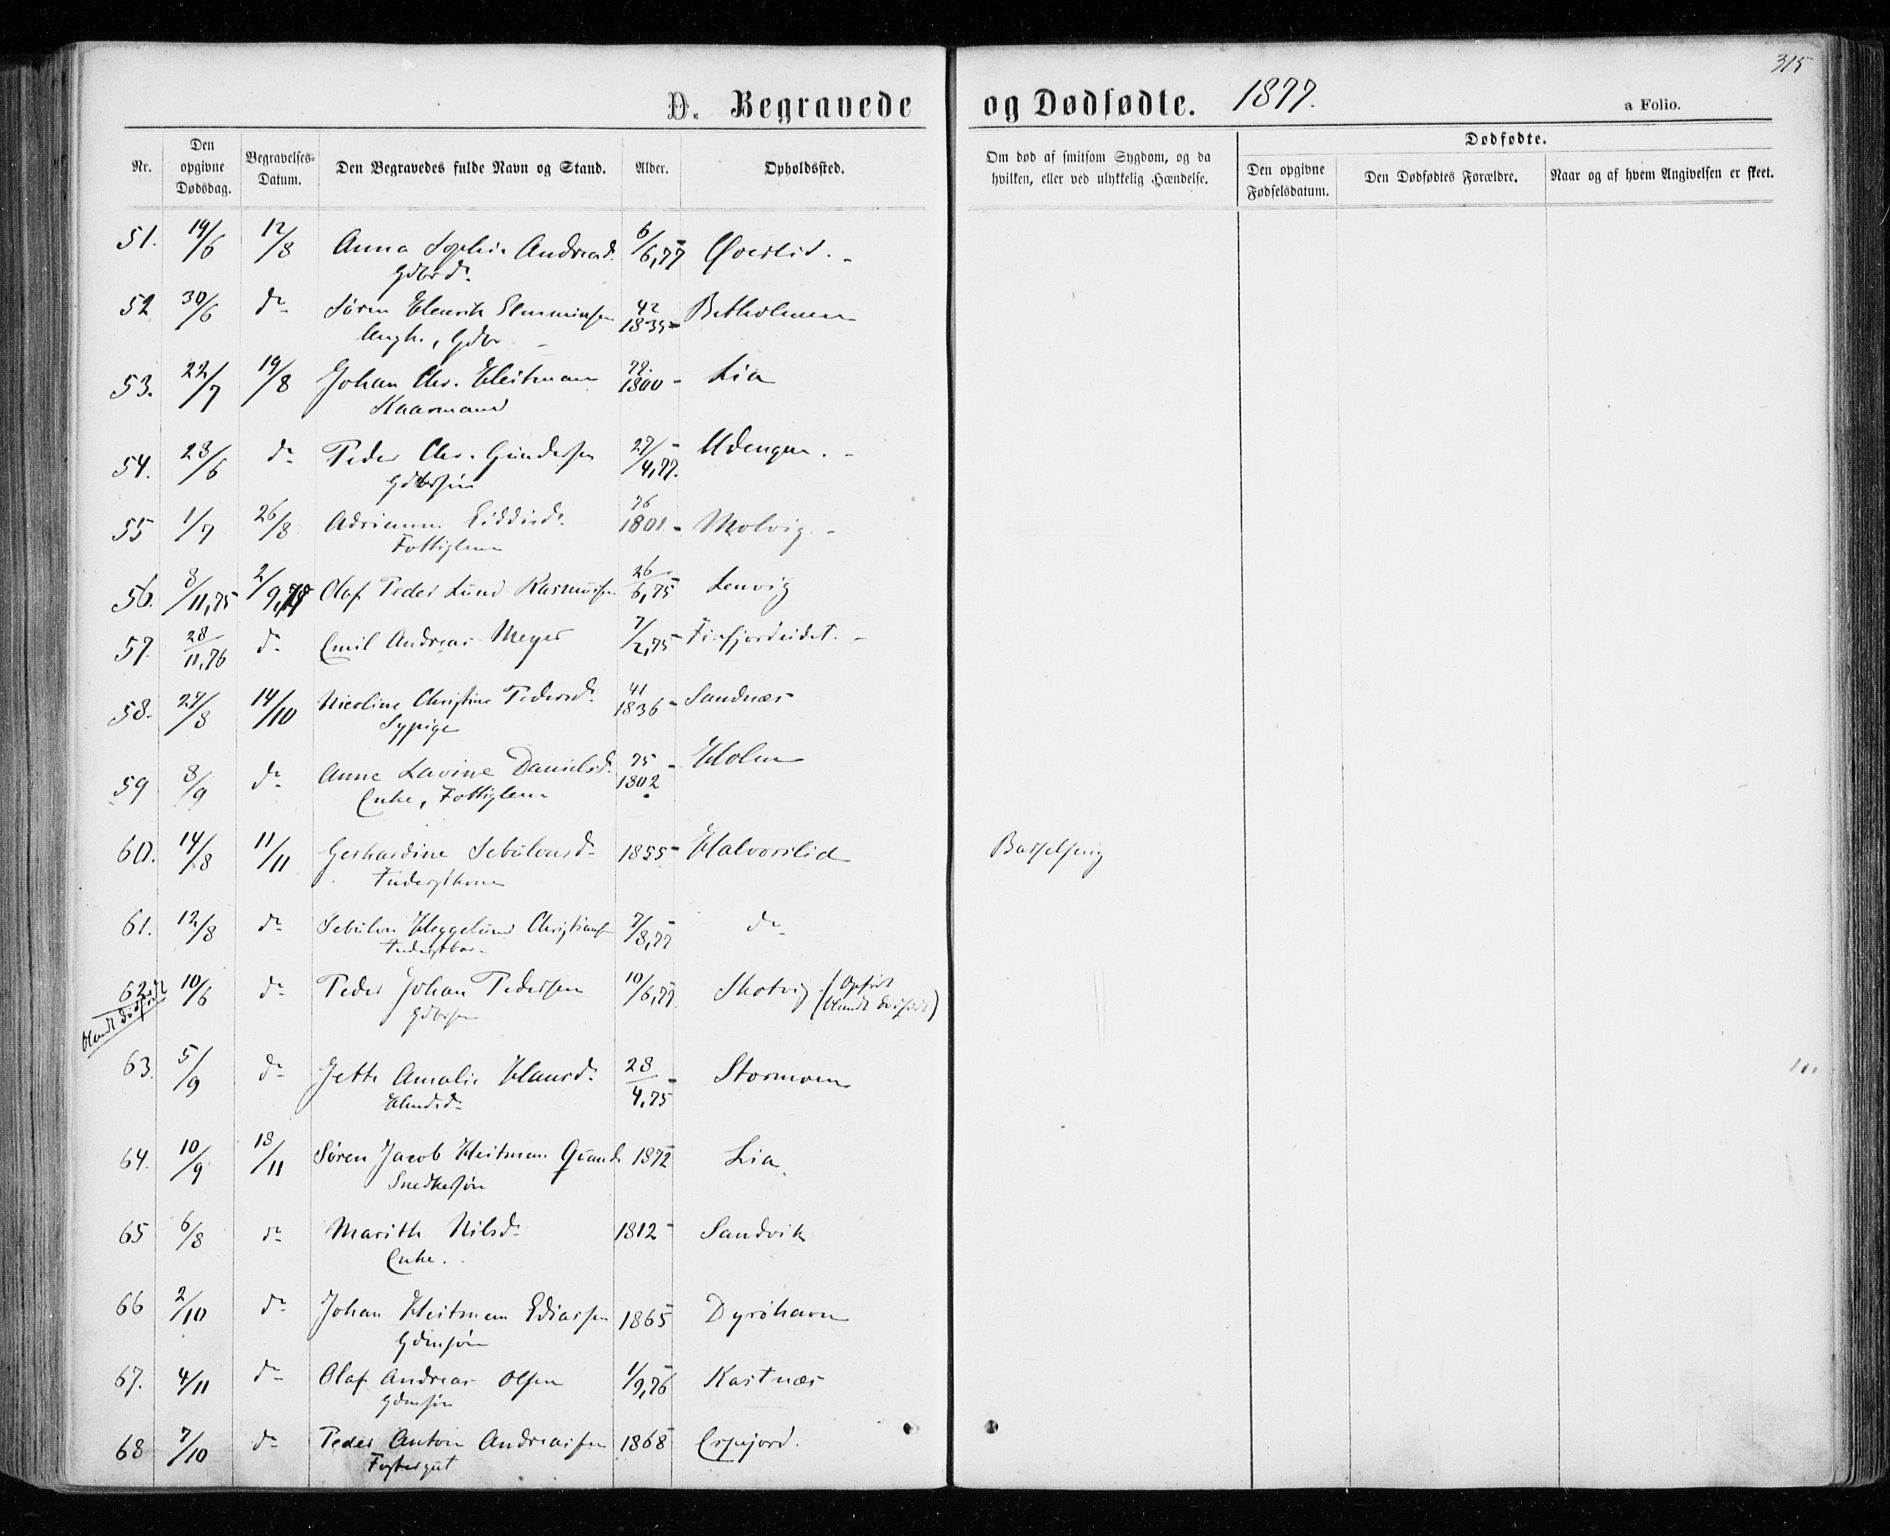 315
D. Begravede og Dødfødte. 1877. a Folio.
Nr. Den opgivne Dødsdag. Begravelses-Datum. Den Begravedes fulde Navn og Stand. Alder. Opholdssted. Om død af smitsom Sygdom, og da hvilken, eller ved ulykkelig Hændelse. Dødfødte. Den opgivne Fødselsdatum. Den Dødfødtes Forældre. Naar og af hvem Angivelsen er skeet.
51. 19/6 12/8 Anna Sophie Andreasd. 6/6,77 Øverlid.
Gdbrd.
52 30/6 do Søren Henrik Elmminsen 42 1835 Betholmen
Ungk., Gdbr
53. 22/7 19/8 Johan Chr. Heitmann 77. 1800 Lia
Kaarmand
54. 28/6 do Peder Chr. Gundersen 27/4,77. Udengen.
Gdbrsøn
55 1/7 26/8 Adrianna Eiddisd. 76 1801 Molvig.
Fattiglem
56. 8/11,75 2/9,77 Olaf Peder Lund Rasmussen 26/6,75 Lenvig
57. 28/11,76 do Emil Andreas Meyer 7/2,75 Finfjordeidet.
58. 27/8 14/10 Nicoline Christine Pedersd. 41 1836 Sandnæs
Sypige
59 8/9 do Anne Lavine Danielsd. 75 1802 Holm
Enke, Fattiglem
60. 14/8 11/11 Gerhardine Sebulonsd. 1855 Halvorslid Barselseng
Inderstkone
61. 12/8 do Sebulon Heggelund Christiansen 7/8,77 do
Inderstbar.
62 10/6 do Peder Johan Pedersen 10/6,77. Skotvig (Opført blandt dødfødte)
blandt dødfødte
Gdbrsøn
63. 5/9 do Jette Amalie Hansd. 28/4,75 Stormoen
Hmdsd.
64. 10/9 18/11 Søren Jacob Heitman Qvand 1872 Lia
Snedkersøn
65 6/8 do Marith Nilsd. 1812 Sandvik
Enke.
66 2/10 do Johan Heitman Ediassen 1865 Dyrøhavn
Gdmsøn
67. 4/11 do Olaf Andreas Olsen 1/9,76 Kastnæs
Gdmsøn
68 7/10 do Peder Anton Andreassen 1868 Espejord.
Fostergut